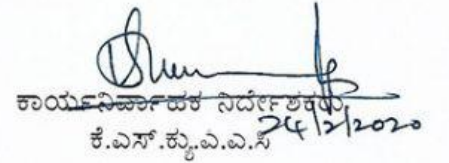 ಕಾರ್ಯನಿರ್ವಾಹಕ ನಿರ್ದೇಶಕರು,
ಕೆ.ಎಸ್.ಕ್ಯು.ಎ.ಎ.ಸಿ
24/2/2020